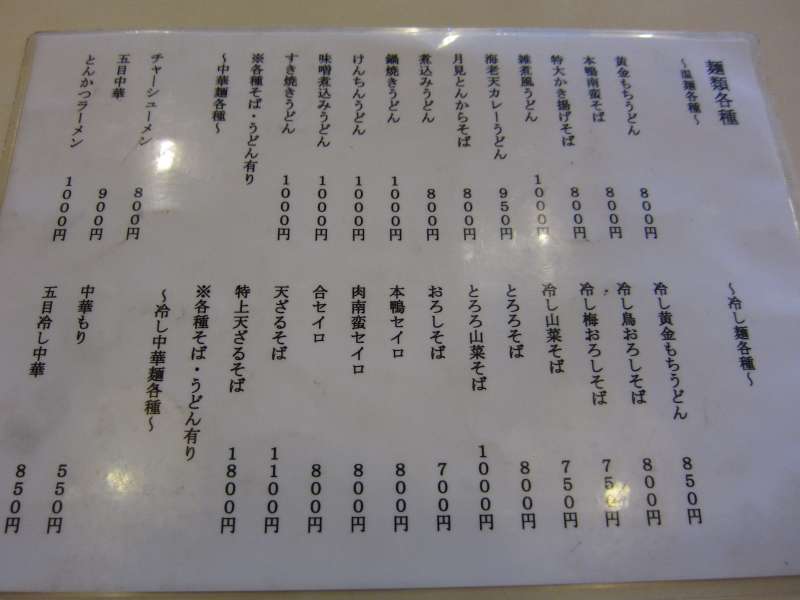 麺類各種
～温麺各種～
黄金もちうどん　８００円
本鴨南蛮そば　８００円
特大かき揚げそば　８００円
雑煮風うどん　１０００円
海老天カレーうどん　９５０円
月見とんからそば　８００円
煮込みうどん　８００円
鍋焼きうどん　１０００円
けんちんうどん　１０００円
味噌煮込みうどん　１０００円
すき焼きうどん　１０００円
※各種そば・うどん有り
～中華麺各種～
チャーシューメン　８００円
五目中華　９００円
とんかつラーメン　１０００円
～冷し麺各種～
冷し黄金もちうどん　８５０円
冷し鳥おろしそば　８００円
冷し梅おろしそば　７５０円
冷し山菜そば　７５０円
とろろそば　８００円
とろろ山菜そば　１０００円
おろしそば　７００円
本鴨セイロ　８００円
肉南蛮セイロ　８００円
合セイロ　８００円
天ざるそば　１１００円
特上天ざるそば　１８００円
※各種そば・うどん有り
～冷し中華麺各種～
中華もり　５５０円
五目冷し中華　８５０円